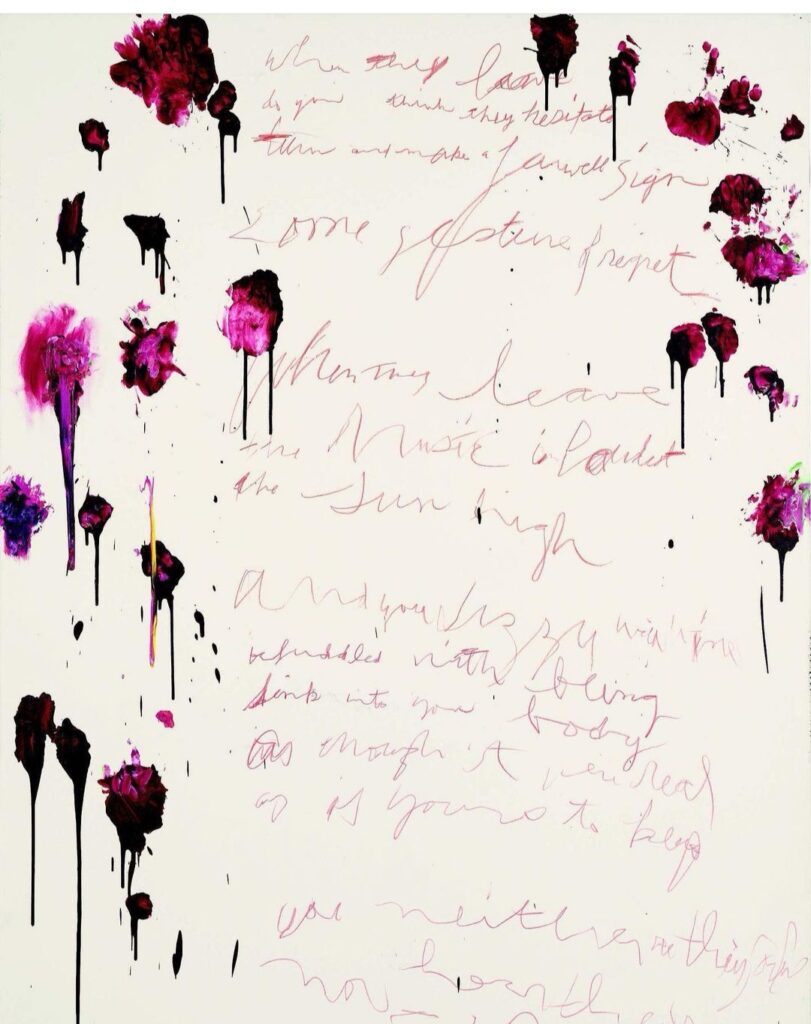 When they leave
do you think they hesitate
turn and make a farewell sign
some gesture of regret
When they leave
the Music is loudest
the sun high
and you dizzy with wine
befuddled with being
sink into your body
as though it were real
as if yours to keep
you neither see their
nor hear their